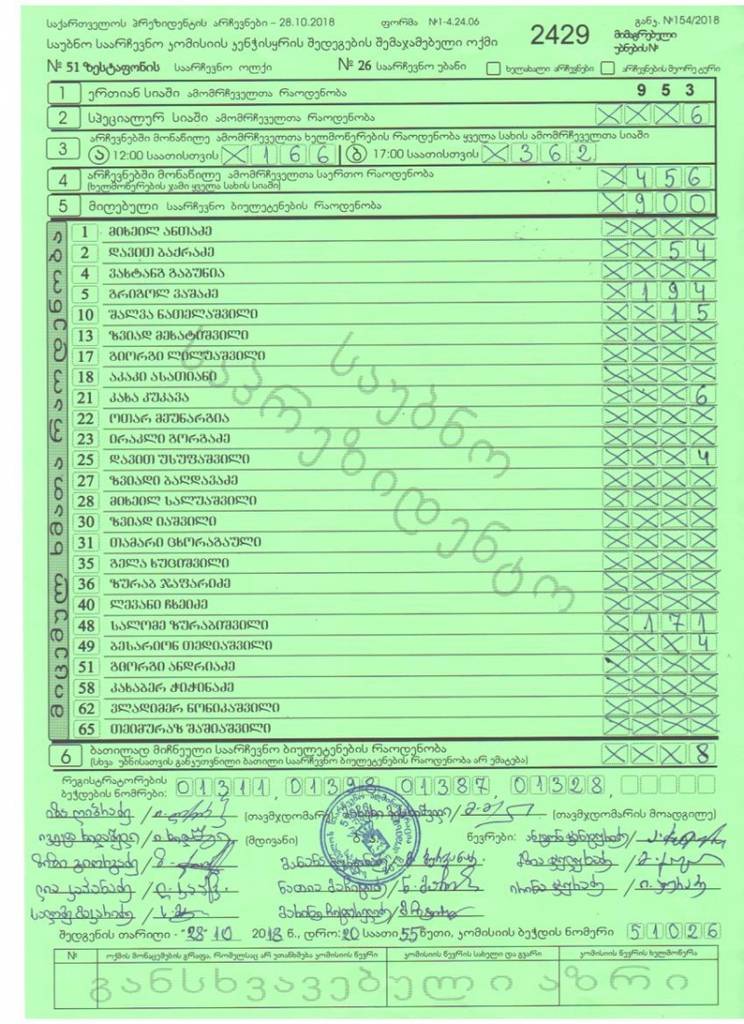 საქართველოს პრეზიდენტის არჩევნები – 28.10.2018 ფორმა №1-4.24.06 განკ. №154/2018
საუბნო საარჩევნო კომისიის კენჭისყრის შედეგების შემაჯამებელი ოქმი 2429 მიმაგრებული უბნების№
№ 51 ზესტაფონის საარჩევნო ოლქი № 26 საარჩევნო უბანი ხელახალი არჩევნები არჩევნების მეორე ტური
1 ერთიან სიაში ამომრჩეველთა რაოდენობა 953
2 სპეციალურ სიაში ამომრჩეველთა რაოდენობა XXX6
3 არჩევნებში მონაწილე ამომრჩეველთა ხელმოწერების რაოდენობა ყველა სახის ამომრჩეველთა სიაში
ა 12:00 საათისთვის X166 ბ 17:00 საათისთვის X362
4 არჩევნებში მონაწილე ამომრჩეველთა საერთო რაოდენობა X456
(ხელმოწერების ჯამი ყველა სახის სიაში)
5 მიღებული საარჩევნო ბიულეტენების რაოდენობა X900
მიცემულ ხმათა რაოდენობა
1 მიხეილ ანთაძე XXXX
2 დავით ბაქრაძე XX54
4 ვახტანგ გაბუნია XXXX
5 გრიგოლ ვაშაძე X194
10 შალვა ნათელაშვილი XX15
13 ზვიად მეხატიშვილი XXXX
17 გიორგი ლილუაშვილი XXXX
18 აკაკი ასათიანი XXXX
21 კახა კუკავა XXX6
22 ოთარ მეუნარგია XXXX
23 ირაკლი გორგაძე XXXX
25 დავით უსუფაშვილი XXX4
27 ზვიადი ბაღდავაძე XXXX
28 მიხეილ სალუაშვილი XXXX
30 ზვიად იაშვილი XXXX
31 თამარი ცხორაგაული XXXX
35 გელა ხუციშვილი XXXX
36 ზურაბ ჯაფარიძე XXXX
40 ლევანი ჩხეიძე XXXX
48 სალომე ზურაბიშვილი X171
49 ბესარიონ თედიაშვილი XXX4
51 გიორგი ანდრიაძე XXXX
58 კახაბერ ჭიჭინაძე XXXX
62 ვლადიმერ ნონიკაშვილი XXXX
65 თეიმურაზ შაშიაშვილი XXXX
საუბნო
საპრეზიდენტო
6 ბათილად მიჩნეული საარჩევნო ბიულეტენების რაოდენობა XXX8
(სხვა უბნისათვის განკუთვნილი ბათილი საარჩევნო ბიულეტენების რაოდენობა არ ემატება)
რეგისტრატორების ბეჭდების ნომრები: 01311, 01398, 01387, 01328,
(თავმჯდომარე) (თავმჯდომარის მოადგილე)
(მდივანი) წევრები:
შედგენის თარიღი - 28 10 2018 წ., დრო: 20 საათი 55 წუთი, კომისიის ბეჭდის ნომერი 51026
№ ოქმის მონაცემების გრაფა, რომელსაც არ ეთანხმება კომისიის წევრი კომისიის წევრის სახელი და გვარი კომისიის წევრის ხელმოწერა
განსხვავებული აზრი